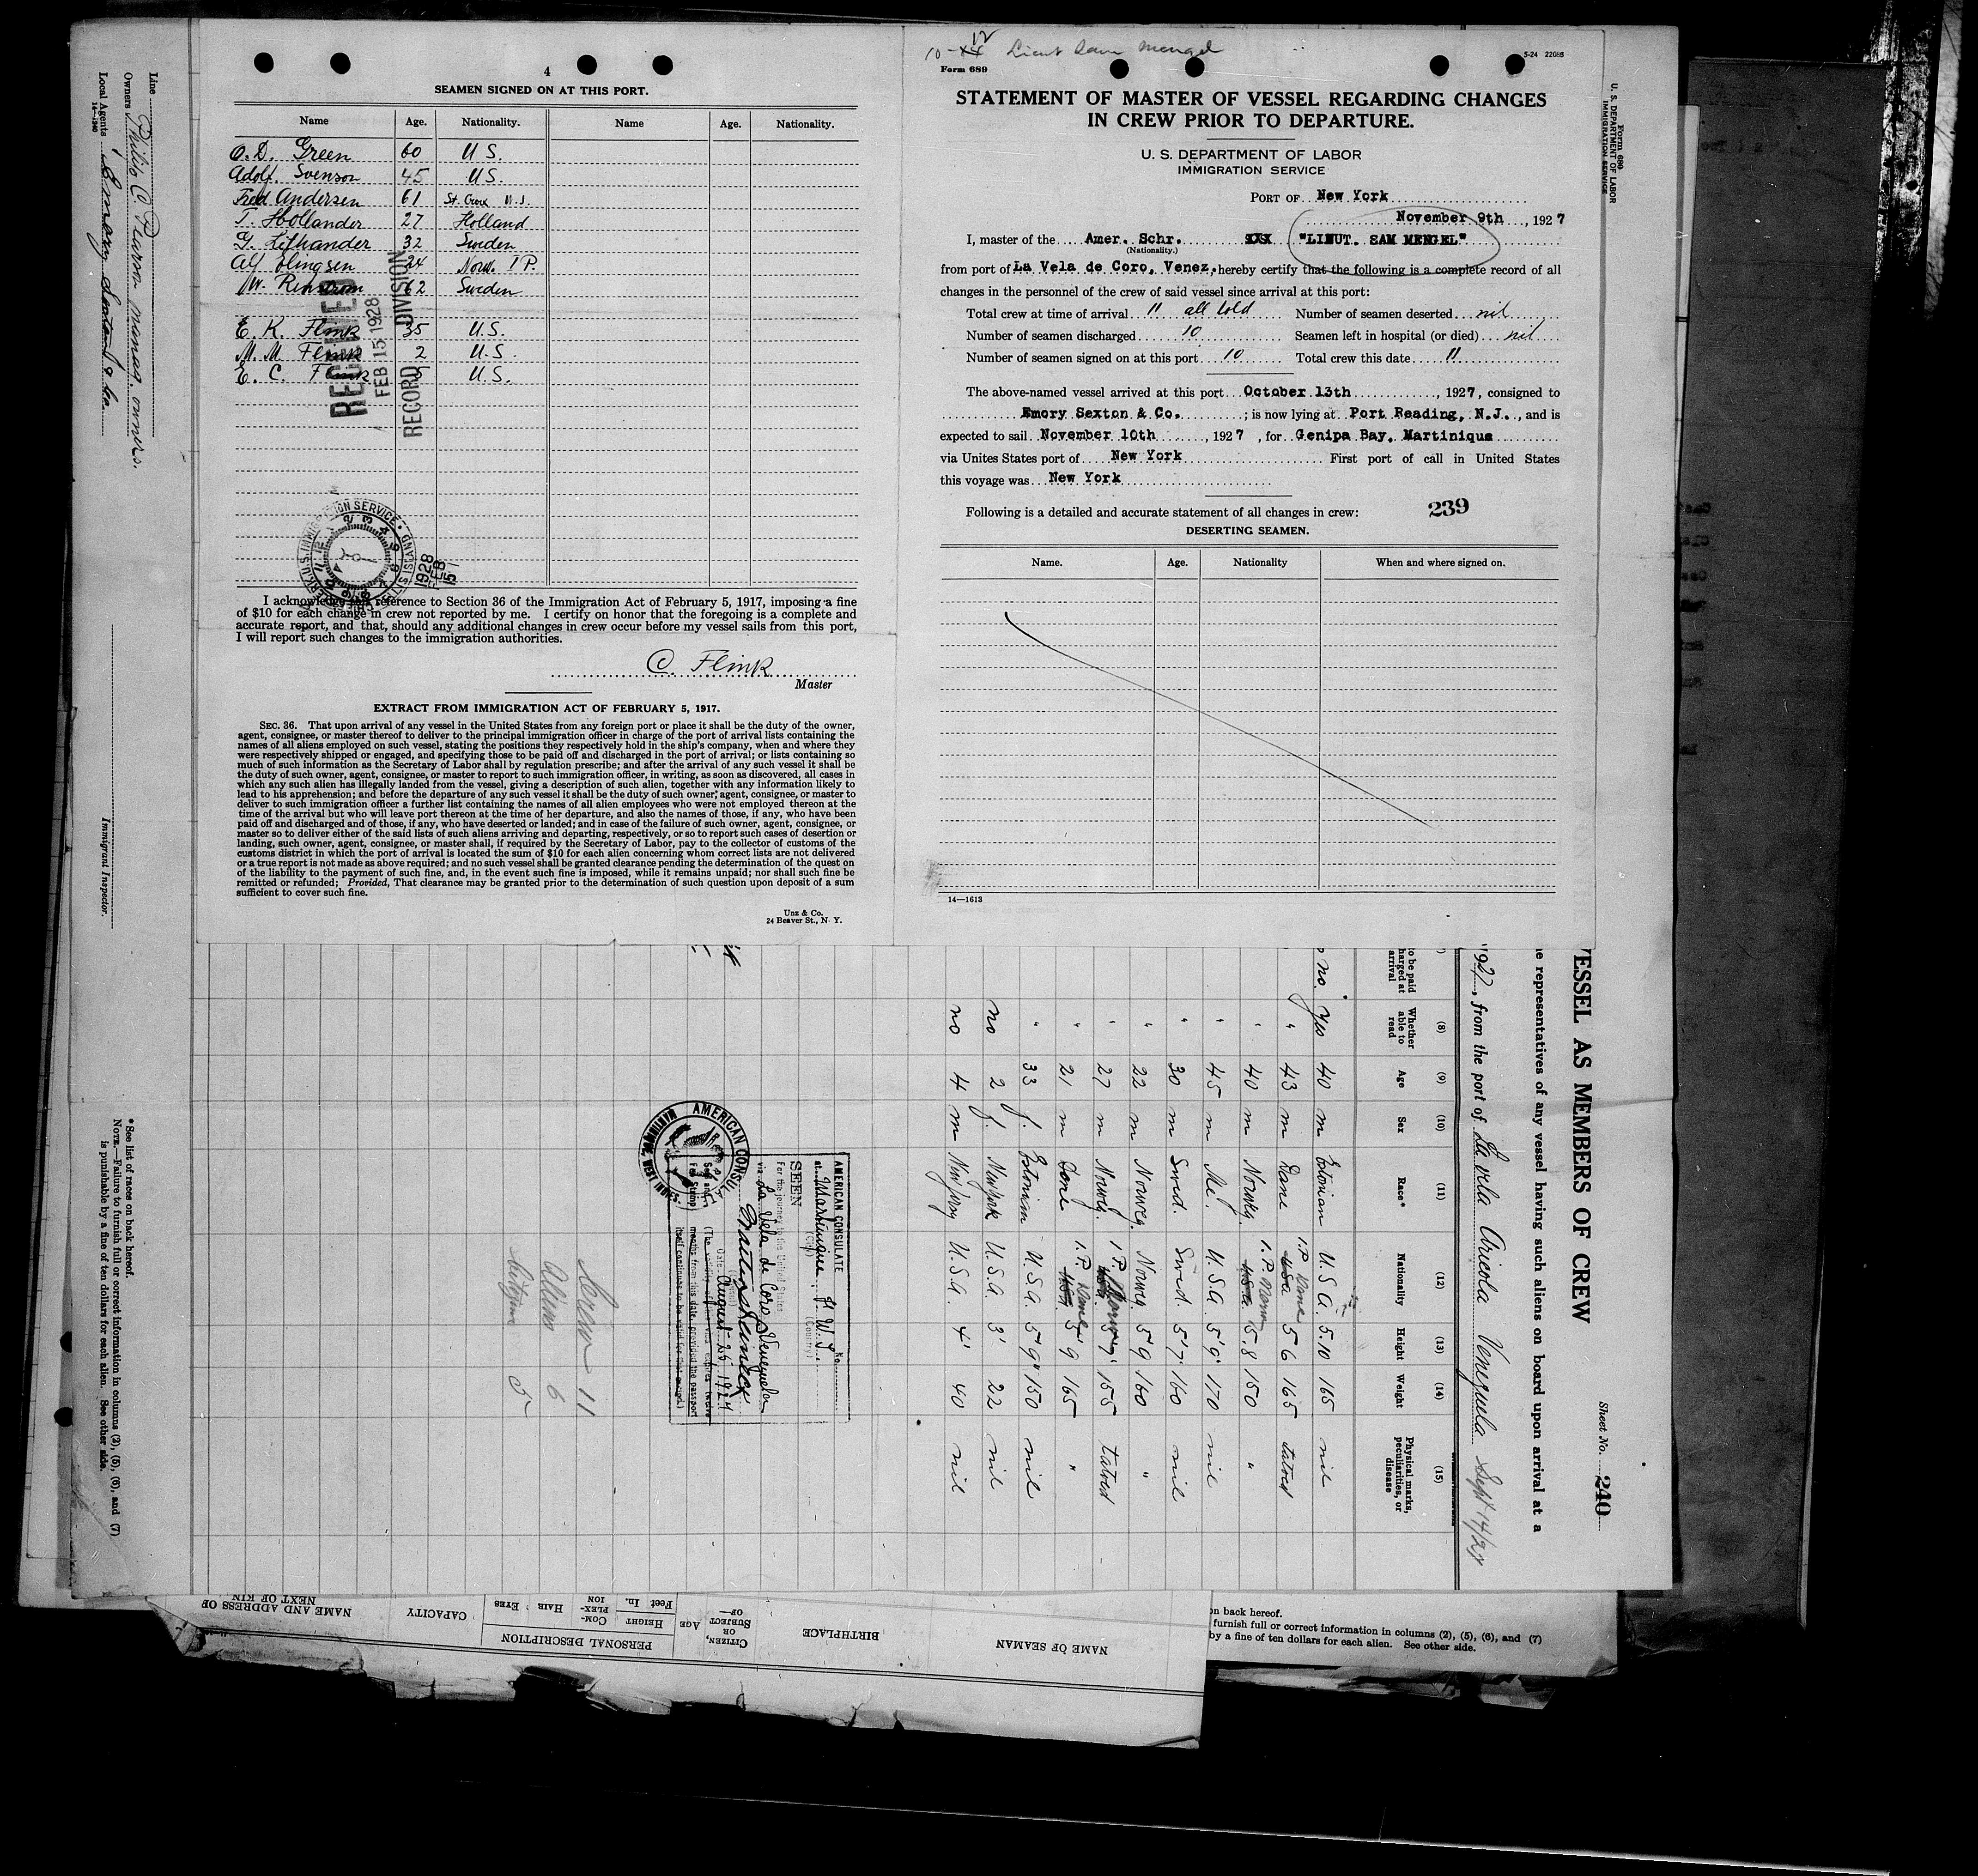 4
SEAMEN SIGNED ON AT THIS PORT.
Name Age. Nationality. Name Age. Nationality.
O. D. Green 60 U S.
Adolf. Svenson 45 U S.
Fred Andersen 61 St. Croix U.S.
T. Hollander 27 Holland
G. Lifhander 32 Sweden
Alf Elingsen 24 Norw. I P.
W. Renstrom 62 Sweden
E. K. Flink 35 U.S.
M. M Flink 2 U.S.
E. C. Flink 5 U.S.
RECEIVED
FEB 15 1928
RECORD DIVISION
U.S. IMMIGRATION SERVICE
ELLIS ISLAND
1928
FEB
15
I acknowledge this reference to Section 36 of the Immigration Act of February 5, 1917, imposing a fine
of $10 for each change in crew not reported by me. I certify on honor that the foregoing is a complete and
accurate report, and that, should any additional changes in crew occur before my vessel sails from this port,
I will report such changes to the immigration authorities.
C. Flink
Master
EXTRACT FROM IMMIGRATION ACT OF FEBRUARY 5, 1917.
SEC. 36. That upon arrival of any vessel in the United States from any foreign port or place it shall be the duty of the owner,
agent, consignee, or master thereof to deliver to the principal immigration officer in charge of the port of arrival lists containing the
names of all aliens employed on such vessel, stating the positions they respectively hold in the ship's company, when and where they
were respectively shipped or engaged, and specifying those to be paid off and discharged in the port of arrival; or lists containing so
much of such information as the Secretary of Labor shall by regulation prescribe; and after the arrival of any such vessel it shall be
the duty of such owner, agent, consignee, or master to report to such immigration officer, in writing, as soon as discovered, all cases in
which any such alien has illegally landed from the vessel, giving a description of such alien, together with any information likely to
lead to his apprehension; and before the departure of any such vessel it shall be the duty of such owner, agent, consignee, or master to
deliver to such immigration officer a further list containing the names of all alien employees who were not employed thereon at the
time of the arrival but who will leave port thereon at the time of her departure, and also the names of those, if any, who have been
paid off and discharged and of those, if any, who have deserted or landed; and in case of the failure of such owner, agent, consignee, or
master so to deliver either of the said lists of such aliens arriving and departing, respectively, or so to report such cases of desertion or
landing, such owner, agent, consignee, or master shall, if required by the Secretary of Labor, pay to the collector of customs of the
customs district in which the port of arrival is located the sum of $10 for each alien concerning whom correct lists are not delivered
or a true report is not made as above required; and no such vessel shall be granted clearance pending the determination of the quest on
of the liability to the payment of such fine, and, in the event such fine is imposed, while it remains unpaid; nor shall such fine be
remitted or refunded; Provided, That clearance may be granted prior to the determination of such question upon deposit of a sum
sufficient to cover such fine.
Unz & Co.
24 Beaver St., N. Y.
10-12 Lieut Sam Mengel
Form 689
5-24 22086
STATEMENT OF MASTER OF VESSEL REGARDING CHANGES
IN CREW PRIOR TO DEPARTURE.
U. S. DEPARTMENT OF LABOR
IMMIGRATION SERVICE
PORT OF New York
November 9th, 1927
I, master of the Amer. Schr. XXX "LIEUT. SAM MENGEL"
(Nationality.)
from port of La Vela de Coro, Venez. hereby certify that the following is a complete record of all
changes in the personnel of the crew of said vessel since arrival at this port:
Total crew at time of arrival 11 all told Number of seamen deserted nil
Number of seamen discharged 10 Seamen left in hospital (or died) nil
Number of seamen signed on at this port 10 Total crew this date 11
The above-named vessel arrived at this port October 13th, 1927, consigned to
Emory Sexton & Co. ; is now lying at Port Reading, N.J., and is
expected to sail November 10th, 1927, for Genipa Bay, Martinique
via Unites States port of New York First port of call in United States
this voyage was New York
Following is a detailed and accurate statement of all changes in crew: 239
DESERTING SEAMEN.
Name. Age. Nationality When and where signed on.
14—1613
Form 689
U. S. DEPARTMENT OF LABOR
IMMIGRATION SERVICE
Line
Owners Philip C Pearson manag. owners.
Local Agents Emory Sexton & Co.
14—1940
Immigrant Inspector.
* See list of races on back hereof.
NOTE.—Failure to furnish full or correct information in columns (2), (5), (6), and (7)
is punishable by a fine of ten dollars for each alien. See other side.
Sheet No. 240
VESSEL AS MEMBERS OF CREW
e representatives of any vessel having such aliens on board upon arrival at a
1927, from the port of La vela Aricola Venezuela Sept 14/27
(8) (9) (10) (11) (12) (13) (14) (15)
to be paid
charged at
arrival
Whether
able to
read
Age Sex Race* Nationality Height Weight
Physical marks,
peculiarities, or
disease
no yes 40 m Estonian U.S.A. 5.10 165 nil
" 43 m Dane I.P. Dane 5 6 165 tatoed
" 40 m Norweg. I.P. Norw 5.8 150 "
" 45 m Me. U.S.A. 5'9" 170 nil
" 30 m Swed. Swed. 5'7" 160 nil
" 22 m Norweg. Norweg 5'9 160 "
" 27 m Norweg. I P. Norweg 5'7 155 tatoed
" 21 m Dane I.P. Dane 5'9 165 "
" 33 f. Estonian U.S.A. 5'9" 150 nil
no 2 f. New York U.S.A 3' 22 nil
no 4 m New Jersey U.S.A. 4' 40 nil
AMERICAN CONSULATE
at Martinique F. W. I.
(City) (Country)
No.
SEEN
For the journey to the United States
via La Vela de Coro, Venezuela
Date August 25, 1927
AMERICAN CONSUL
MARTINIQUE, WEST INDIES
Fee Stamp
Crew 11
Aliens 6
Citizens 5
NAME OF SEAMAN
BIRTHPLACE
CITIZEN,
OR
SUBJECT
OF—
AGE
PERSONAL DESCRIPTION
HEIGHT
Feet In.
COM-
PLEX-
ION
HAIR EYES
CAPACITY
NAME AND ADDRESS OF
NEXT OF KIN
on back hereof.
furnish full or correct information in columns (2), (5), (6), and (7)
by a fine of ten dollars for each alien. See other side.